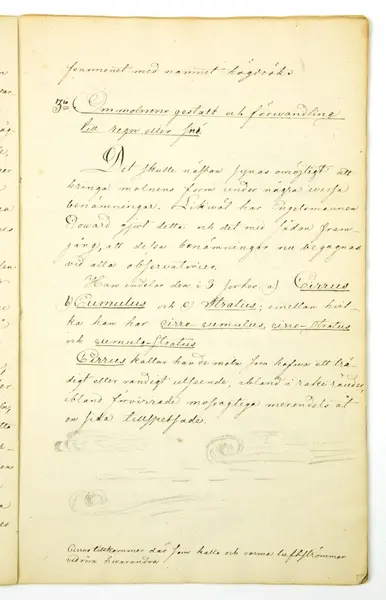 fenomenet med namnet högrök.
3o Om molnens gestalt och förwandling
till regn eller snö.
Det skulle nästan synas omöjligt att
bringa molnens form under några wissa
benämningar. Likwäl har Engelsmannen
Howard gjort detta och det med sådan fram-
gång, att dessa benämningar nu begagnas
vid alla observatorier.
Han indelar dem i 3 sorter a) Cirrus
b) Cumulus och c) Stratus; emellan hvil-
ka han har cirro cumulus, cirro-stratus
och cumulo-stratus
Cirrus kallar han de moln som hafwa ett trå-
digt eller randigt utseende, ibland i raka ränder,
ibland förwirrade merendels åt
en sida tillspetsade.
Cirrus tillkommer där som kalla och varma luftströmmar
vidröra hwarandra